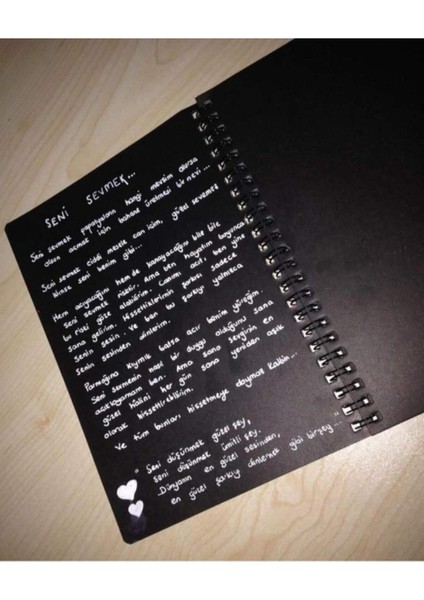 SENİ SEVMEK...
Seni sevmek papatyaların hangi mevsim olursa
olsun açması için bahane üretmesi bir nevi...
Seni sevmek ciddi mesele can içim, güzel sevemez
kimse seni benim gibi...
Hem acıyacağını hem de kanayacağını bile bile
seni sevmek risktir. Ama ben hayatım boyunca
bu riski göze alabilirim. Canımı acıt ben yine
sana gelirim. Hissettiklerimin şarkısı sadece
senin sesin. Ve ben bu şarkıyı yalnızca
senin sesinden dinlerim.
Parmağına kıymık batsa acır benim yüreğim.
Seni sevmenin nasıl bir duygu olduğunu sana
açıklayamam ben. Ama sana sevginin en
güzel halini her gün sana yeniden aşık
olarak hissettirebilirim.
Ve tüm bunları hissetmeye doymaz kalbim...
"Seni düşünmek güzel şey,
seni düşünmek ümitli şey.
Dünyanın en güzel sesinden,
en güzel şarkıyı dinlemek gibi birşey..."